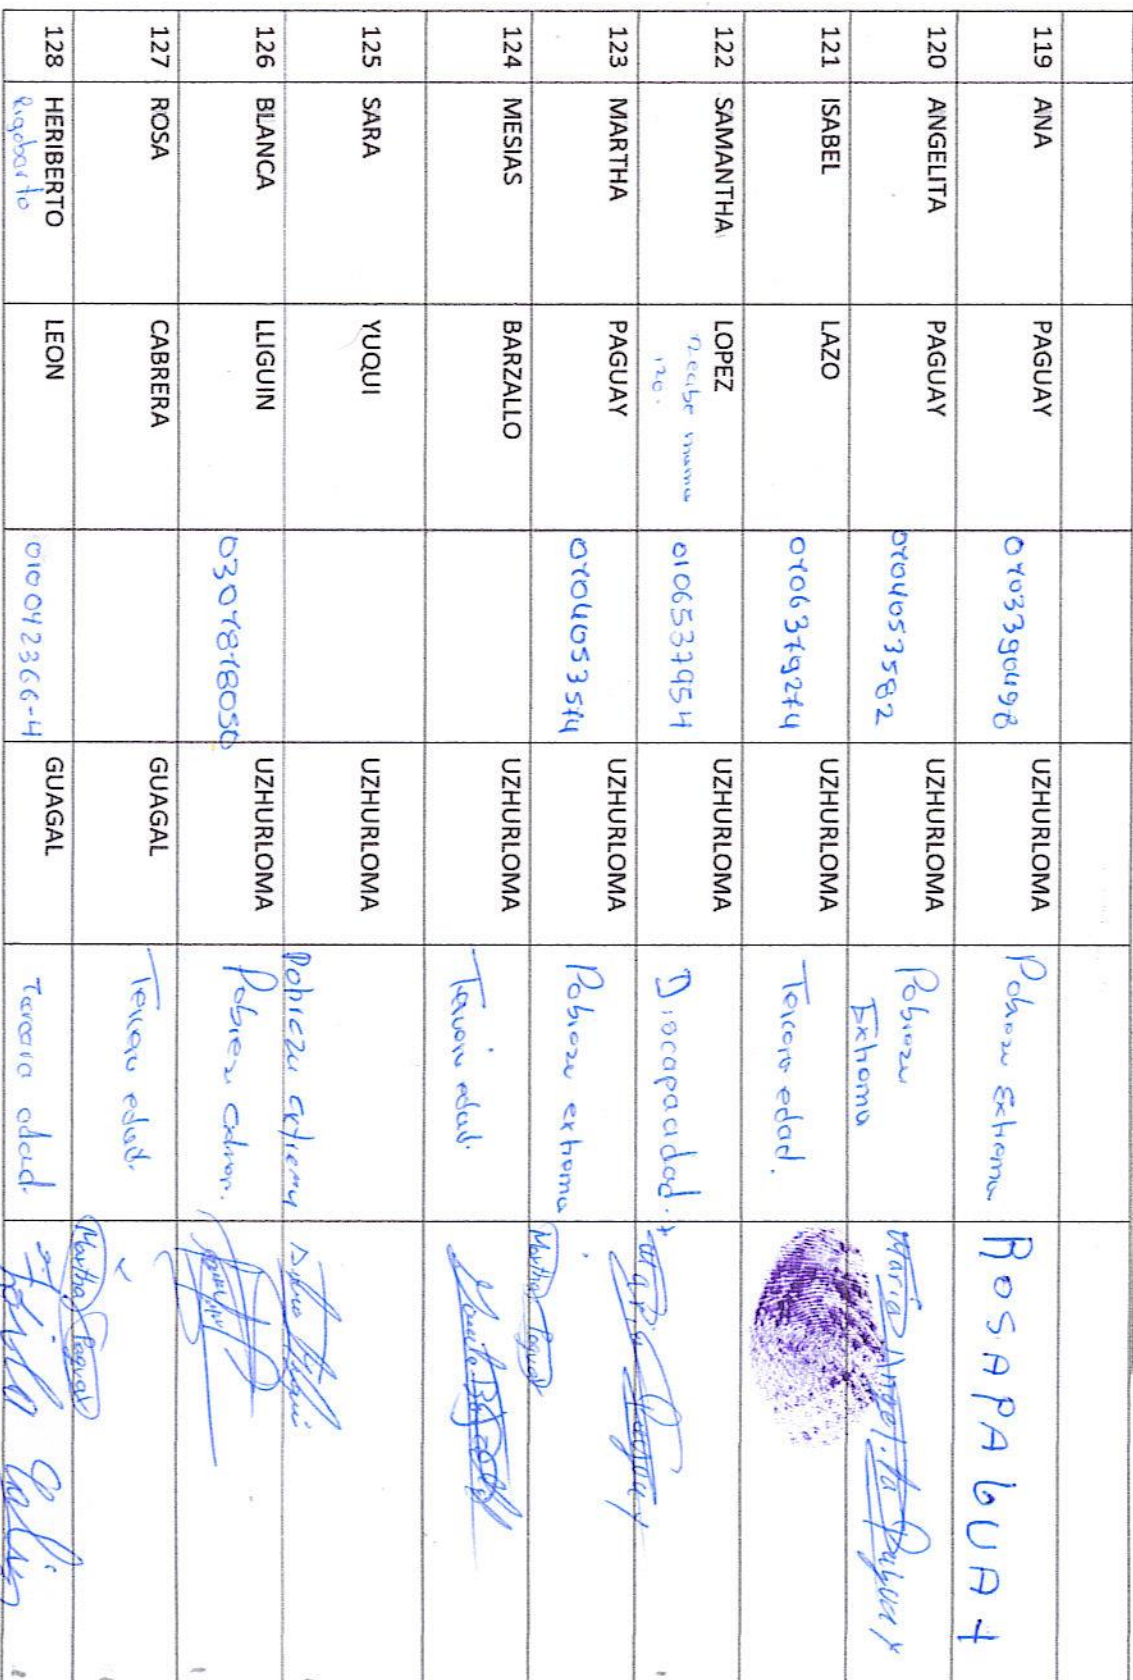 119 ANA PAGUAY 0103390498 UZHURLOMA Pobreza Extrema ROSA PAGUAY
120 ANGELITA PAGUAY 0104053582 UZHURLOMA Pobreza
Extrema Maria Angelita Paguay
121 ISABEL LAZO 0106379274 UZHURLOMA Tercera edad.
122 SAMANTHA LOPEZ 0106537954 UZHURLOMA Discapacidad.
Recibe mama
120.
Maria Paguay
123 MARTHA PAGUAY 0104053574 UZHURLOMA Pobreza extrema
Martha Paguay
124 MESIAS BARZALLO UZHURLOMA Tercera edad.
125 SARA YUQUI UZHURLOMA Pobreza extrema
126 BLANCA LLIGUIN 0301818050 UZHURLOMA Pobreza extrem.
127 ROSA CABRERA GUAGAL Tercera edad.
Martha Paguay
128 HERIBERTO LEON 010042366-4 GUAGAL Tercera edad.
Rigoberto